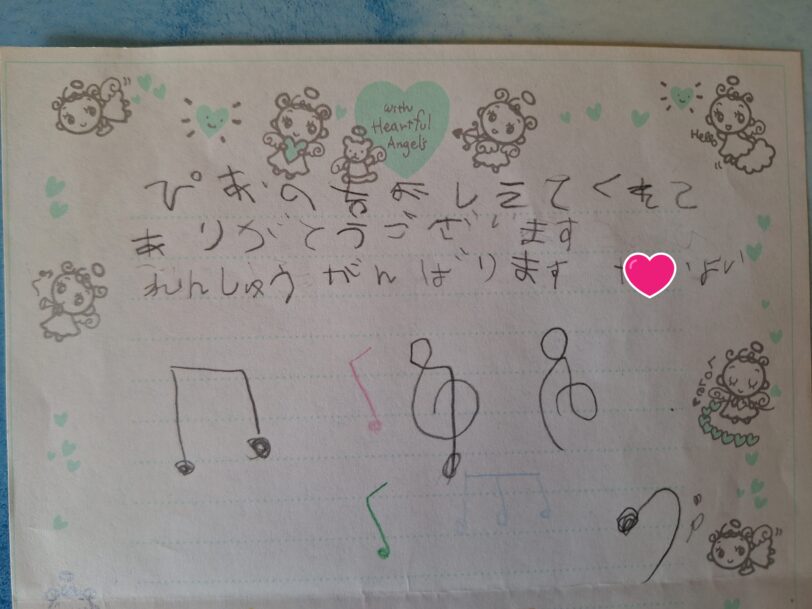 with
Heartful
Angels
Hello
ぴあの をおしえてくれて
ありがとうございます
れんしゅう がんばります